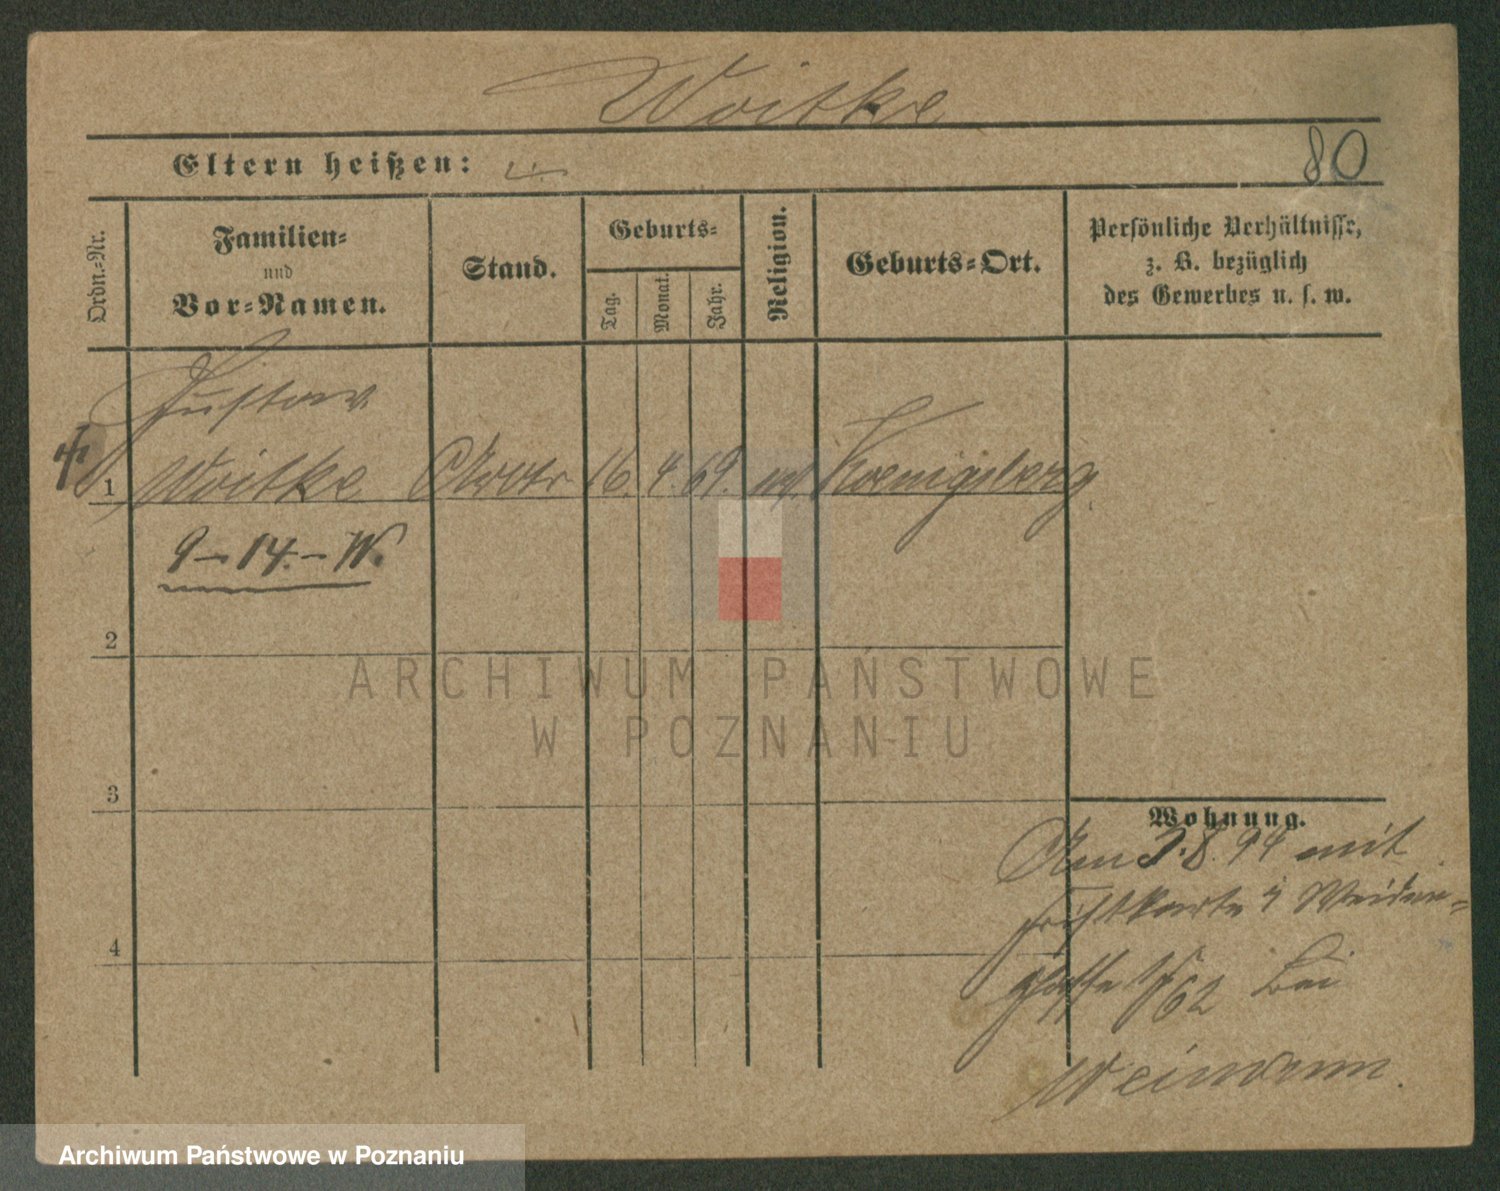 Woitke
80
Eltern heißen:
Ordn.-Nr.
Familien-
und
Vor-Namen.
Stand.
Geburts-
Tag.
Monat.
Jahr.
Religion.
Geburts-Ort.
Persönliche Verhältnisse,
z. B. bezüglich
des Gewerbes u. s. w.
Gustav
1 Woitke 16. 4. 69. Koenigsberg.
9-14.-W.
2
3
4
Wohnung.
3.8.94 mit
Weiden-
gasse bei
Weimann.
ARCHIWUM PAŃSTWOWE
W POZNANIU
Archiwum Państwowe w Poznaniu